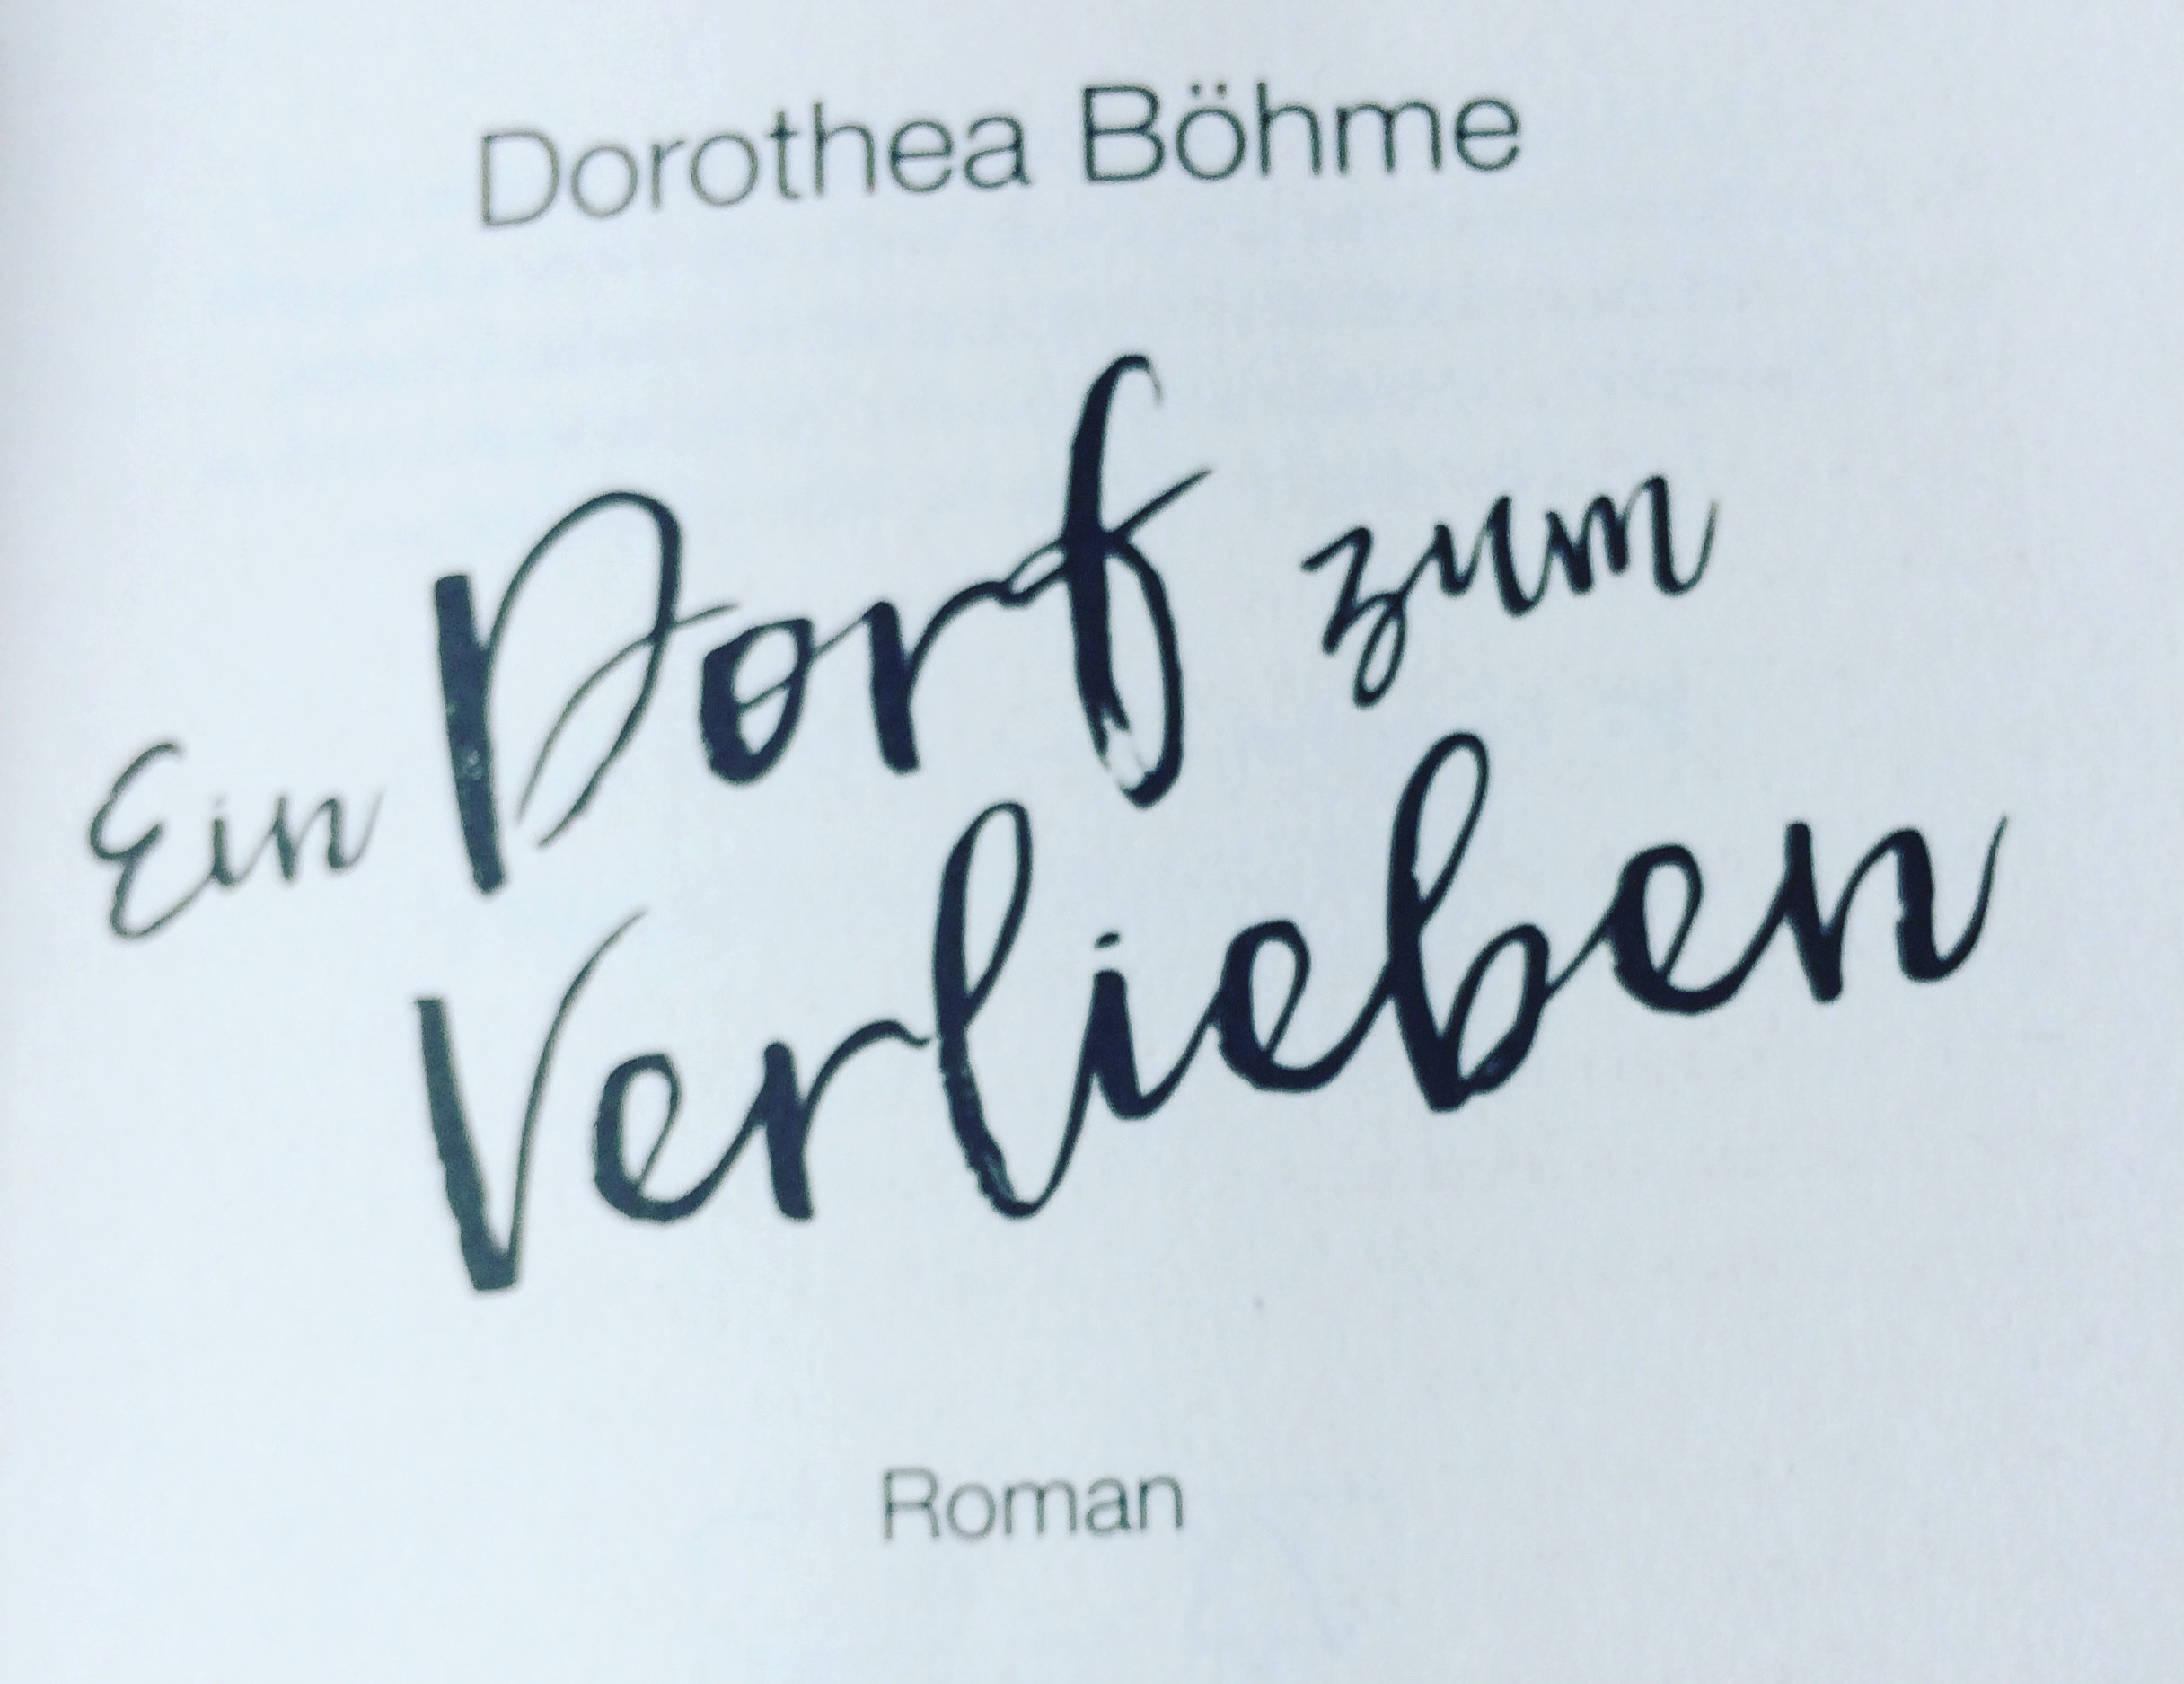 Dorothea Böhme
Ein Dorf zum
Verlieben
Roman